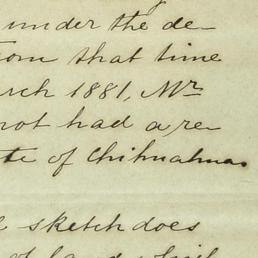 under the de-
om that time
rch 1881, Mr
not had a re-
te of Chihuahua
sketch does
of land which